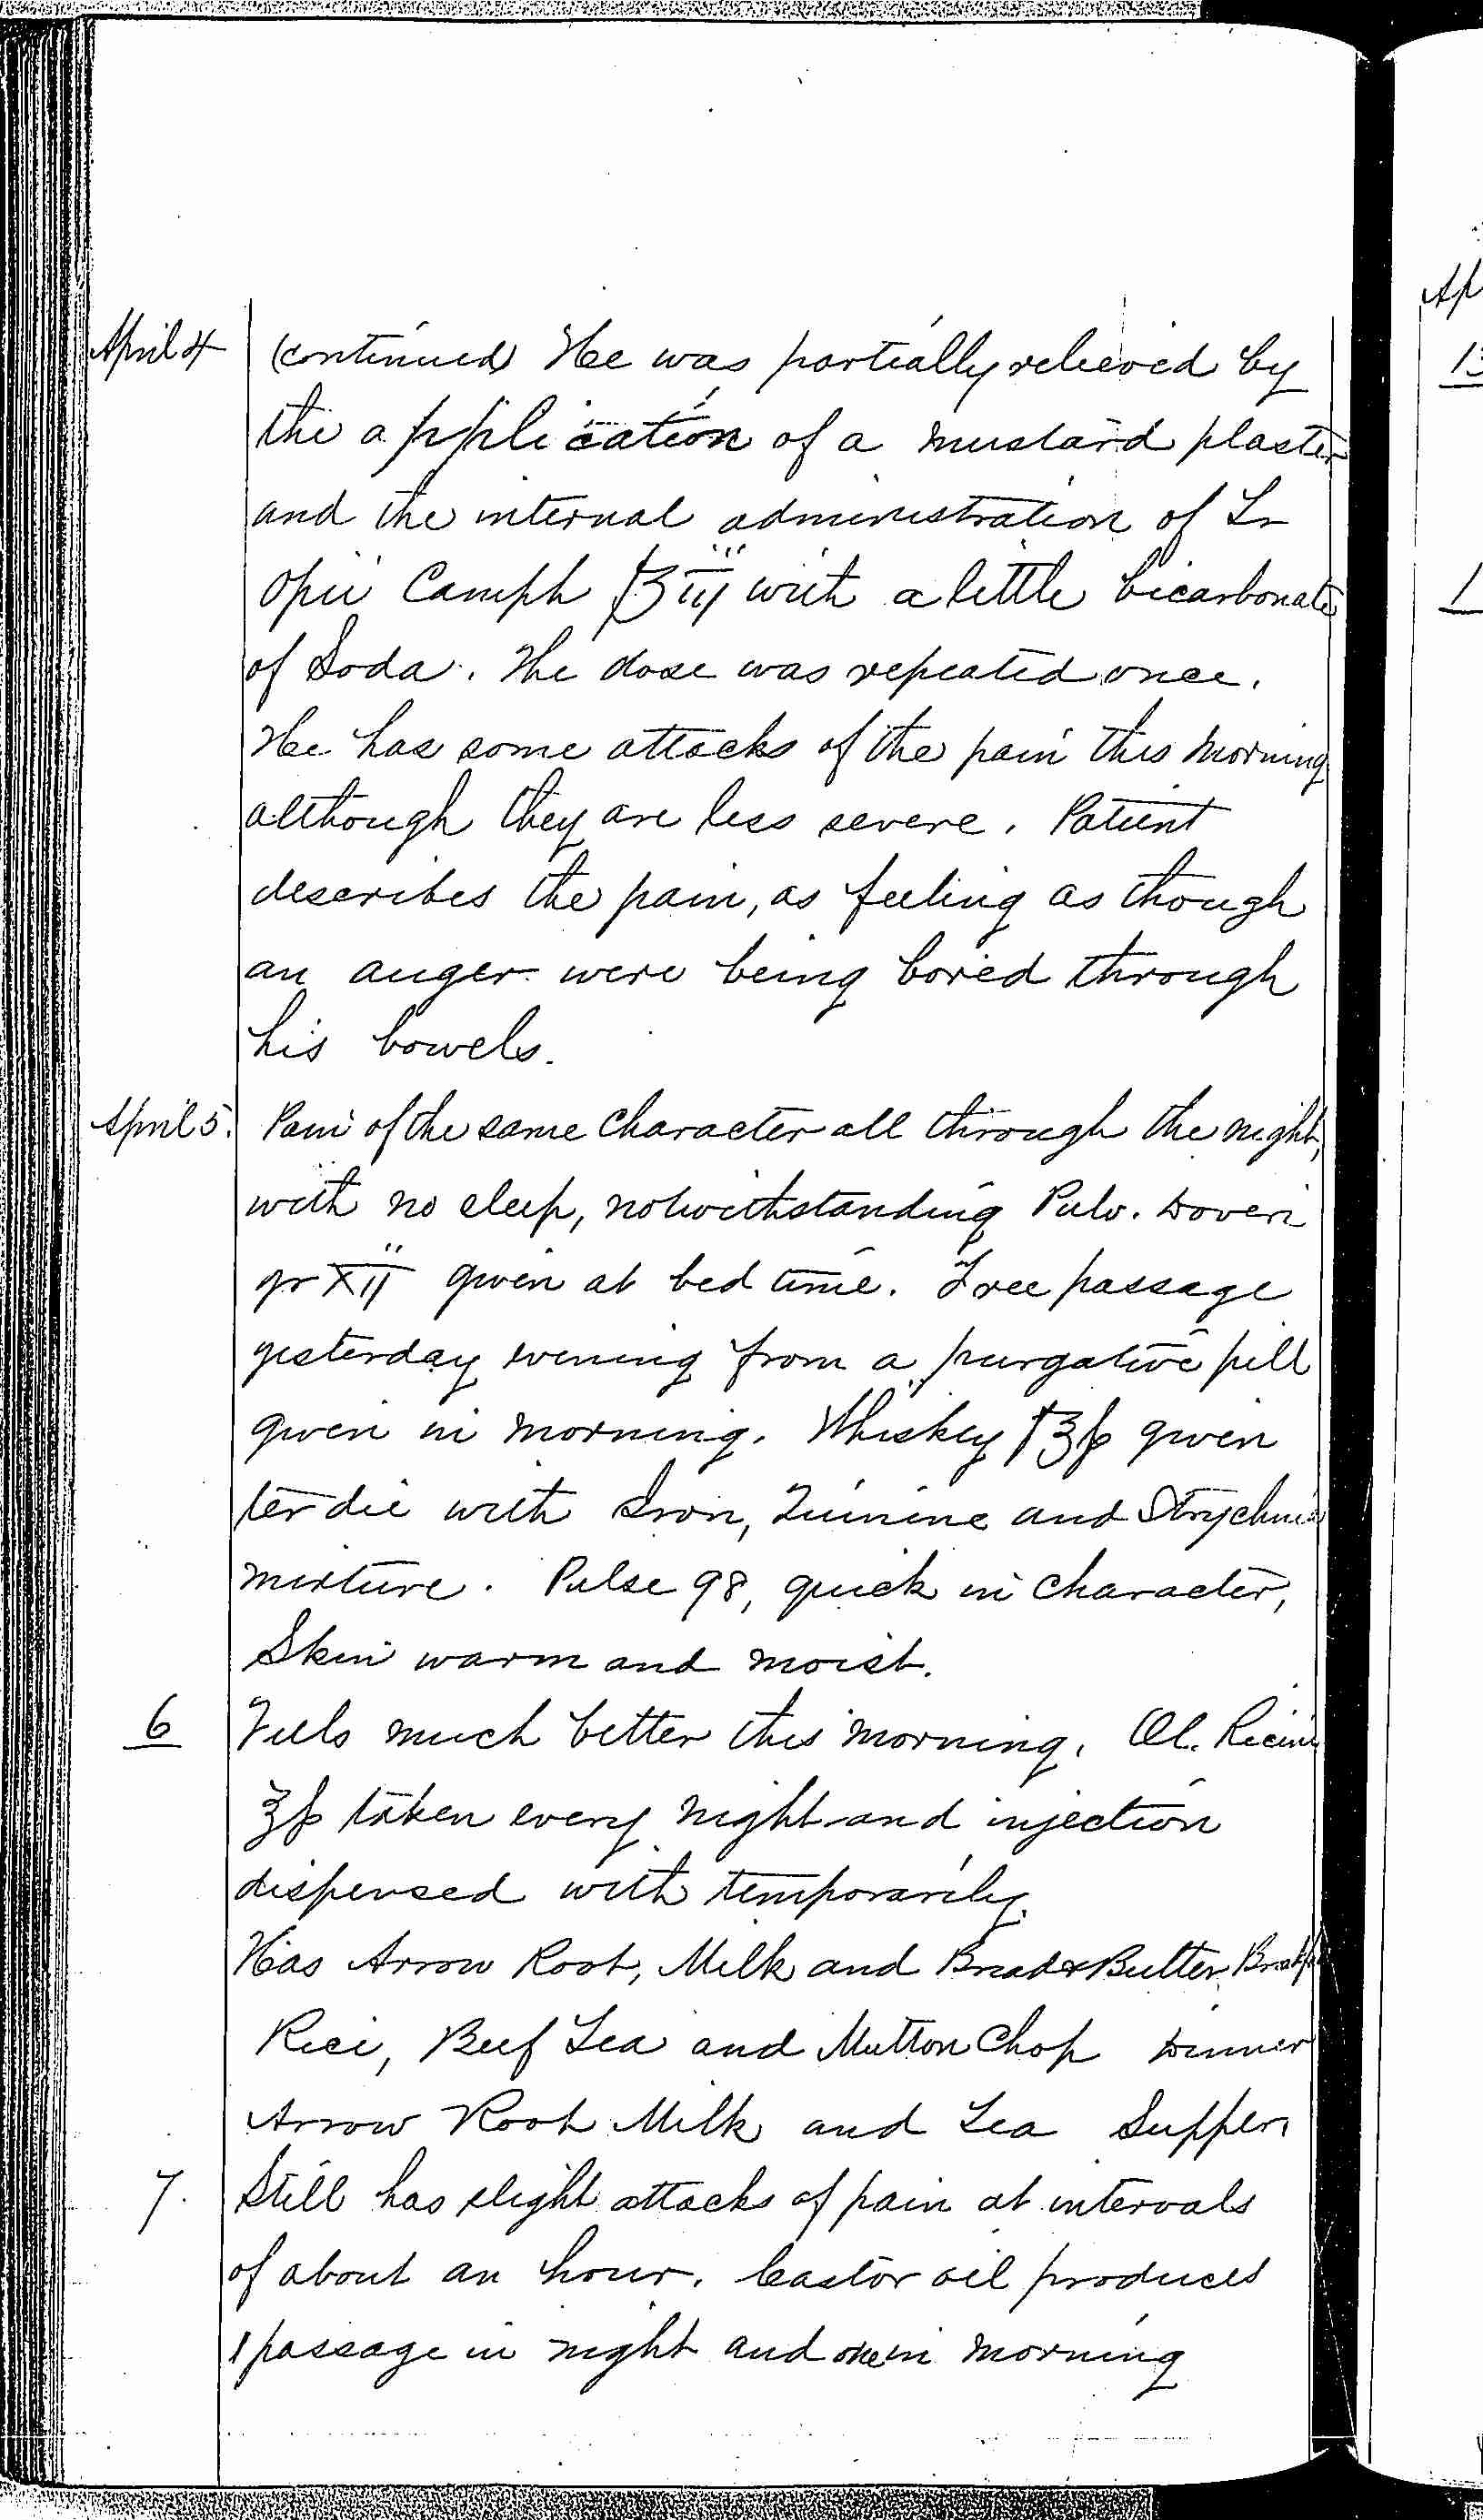 April 4 (continued) He was partially relieved by
the application of a mustard plaster
and the internal administration of Tr
Opii Camph f℥iij with a little bicarbonate
of Soda. The dose was repeated once.
He has some attacks of the pain this morning
although they are less severe. Patient
describes the pain, as feeling as though
an auger were being bored through
his bowels.
April 5. Pain of the same character all through the night,
with no sleep, notwithstanding Pulv. Doveri
gr XII given at bed time. Free passage
yesterday evening from a purgative pill
given in morning. Whiskey f℥ss given
ter die with Iron, Quinine and Strychnia
mixture. Pulse 98, quick in character,
Skin warm and moist.
6 Feels much better this morning. Ol. Ricini
℥ss taken every night and injection
dispensed with temporarily.
Has Arrow Root, Milk and Bread & Butter, Breakf
Rice, Beef Tea and Mutton Chop Dinner
Arrow Root Milk and Tea Supper
7. Still has slight attacks of pain at intervals
of about an hour. Castor oil produces
1 passage in night and one in morning
Ap
13
1